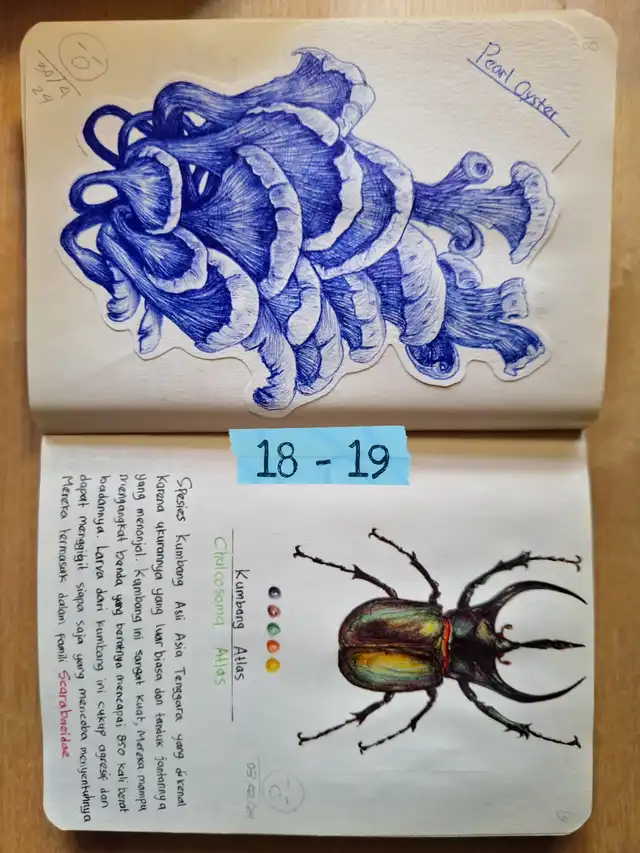 18
Pearl Oyster
24
18 - 19
Kumbang Atlas
Chalcosoma Atlas
Spesies Kumbang Asli Asia Tenggara yang dikenal
karena ukurannya yang luar biasa dan tanduk jantannya
yang menonjol. Kumbang ini sangat kuat, Mereka mampu
mengangkat benda yang beratnya mencapai 850 kali berat
badannya. Larva dari kumbang ini cukup agresif dan
dapat menggigit siapa saja yang mencoba menyentuhnya
Mereka termasuk dalam famili Scarabaeidae